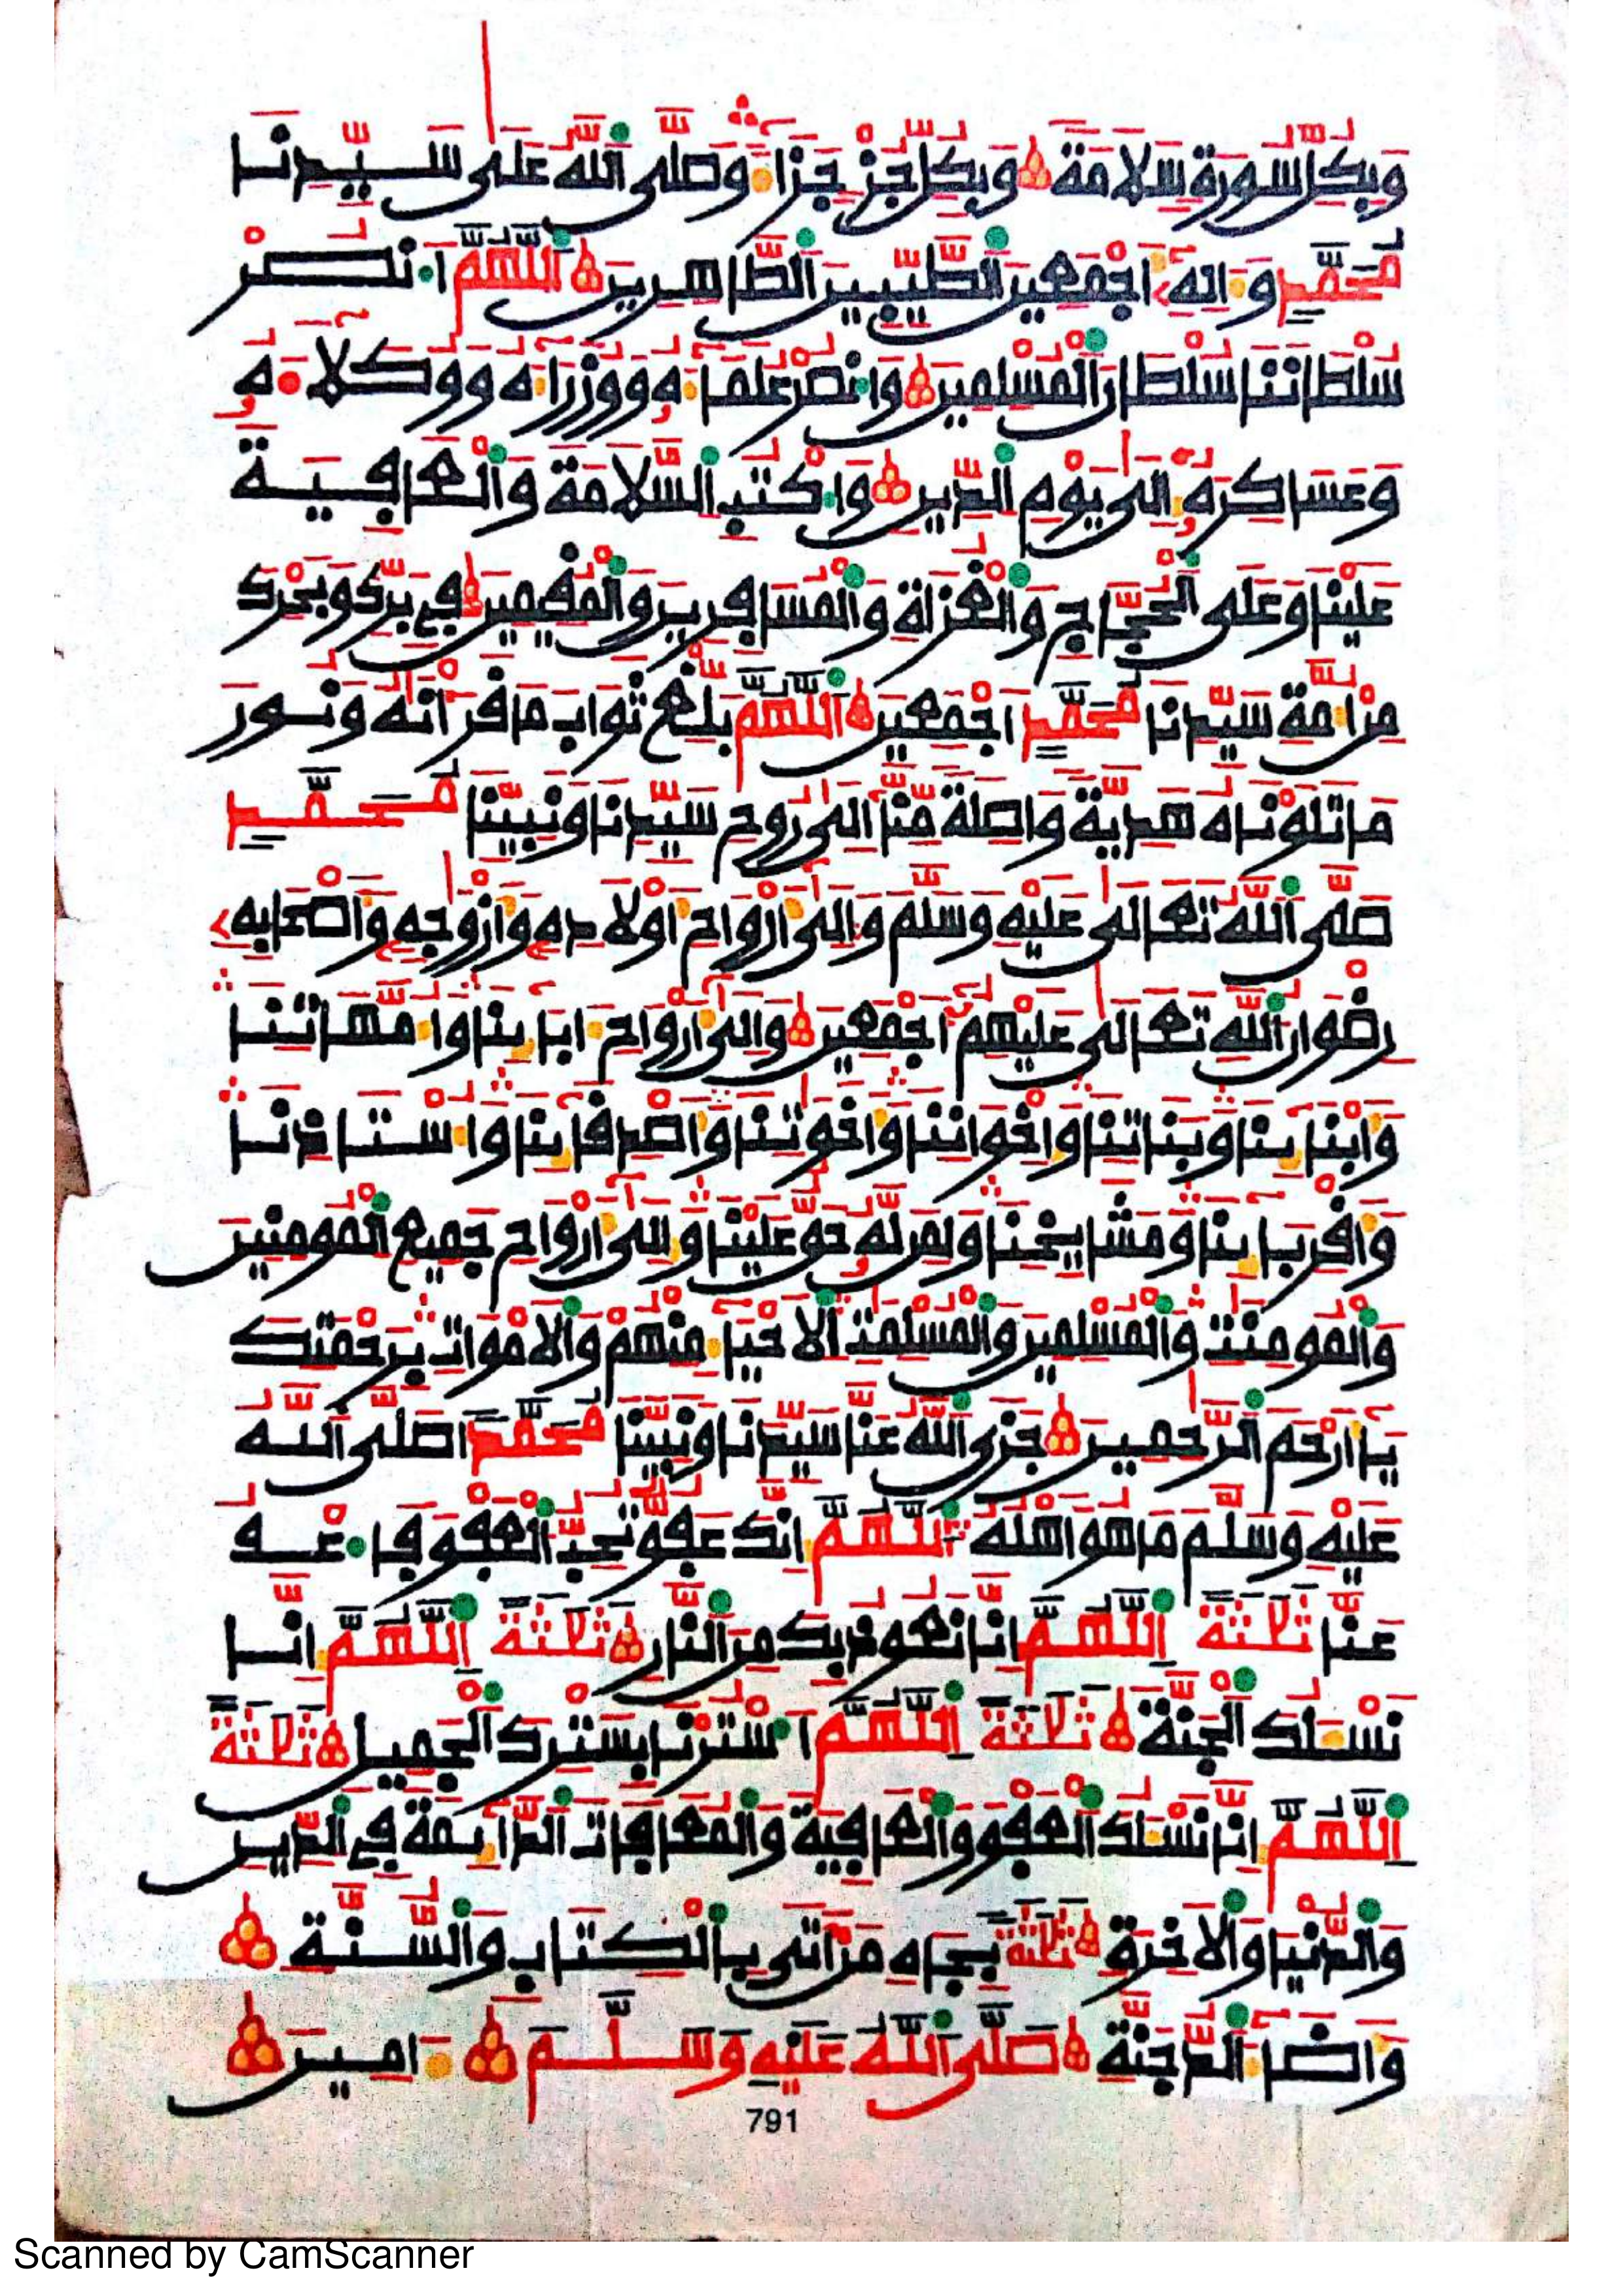 وَبِكُلِّ سُورَةٍ سَلَامَةً وَبِكُلِّ جُزْءٍ جَزَاءً وَصَلَّى اللَّهُ عَلَى سَيِّدِنَا
مُحَمَّدٍ وَءَالِهِ أَجْمَعِينَ الطَّيِّبِينَ الطَّاهِرِينَ اللَّهُمَّ انْصُرْ
سُلْطَانَنَا سُلْطَانَ الْمُسْلِمِينَ وَانْصُرْ عُلَمَآءَهُ وَوُزَرَآءَهُ وَوُكَلَآءَهُ
وَعَسَاكِرَهُ إِلَى يَوْمِ الدِّينِ وَاكْتُبِ السَّلَامَةَ وَالْعَافِيَةَ
عَلَيْنَا وَعَلَى الْحُجَّاجِ وَالْغُزَاةِ وَالْمُسَافِرِينَ وَالْمُقِيمِينَ فِي بَرِّكَ وَبَحْرِكَ
مِنْ أُمَّةِ سَيِّدِنَا مُحَمَّدٍ أَجْمَعِينَ اللَّهُمَّ بَلِّغْ ثَوَابَ مَا قَرَأْنَاهُ وَنُورَ
مَا تَلَوْنَاهُ هَدِيَّةً وَاصِلَةً مِّنَّا إِلَى رُوحِ سَيِّدِنَا وَنَبِيِّنَا مُحَمَّدٍ
صَلَّى اللَّهُ تَعَالَى عَلَيْهِ وَسَلَّمَ وَإِلَى أَرْوَاحِ أَوْلَادِهِ وَأَزْوَاجِهِ وَأَصْحَابِهِ
رِضْوَانُ اللَّهِ تَعَالَى عَلَيْهِمْ أَجْمَعِينَ وَإِلَى أَرْوَاحِ ءَابَآئِنَا وَأُمَّهَاتِنَا
وَأَبْنَآئِنَا وَبَنَاتِنَا وَإِخْوَانِنَا وَأَخَوَاتِنَا وَأَصْدِقَآئِنَا وَأُسْتَاذِنَا
وَأَقْرِبَآئِنَا وَمَشَايِخِنَا وَلِمَن لَّهُ حَقٌّ عَلَيْنَا وَإِلَى أَرْوَاحِ جَمِيعِ الْمُومِنِينَ
وَالْمُومِنَتِ وَالْمُسْلِمِينَ وَالْمُسْلِمَتِ الْأَحْيَآءِ مِنْهُمْ وَالْأَمْوَاتِ بِرَحْمَتِكَ
يَآ أَرْحَمَ الرَّحِمِينَ جَزَى اللَّهُ عَنَّا سَيِّدَنَا وَنَبِيَّنَا مُحَمَّدًا صَلَّى اللَّهُ
عَلَيْهِ وَسَلَّمَ مَا هُوَ أَهْلُهُ اللَّهُمَّ إِنَّكَ عَفُوٌّ تُحِبُّ الْعَفْوَ فَاعْفُ
عَنَّا ثَلَثَةً اللَّهُمَّ إِنَّا نَعُوذُ بِكَ مِنَ النَّارِ ثَلَثَةً اللَّهُمَّ إِنَّا
نَسْئَلُكَ الْجَنَّةَ ثَلَثَةً اللَّهُمَّ اسْتُرْنَا بِسَتْرِكَ الْجَمِيلِ ثَلَثَةً
اللَّهُمَّ إِنَّا نَسْئَلُكَ الْعَفْوَ وَالْعَافِيَةَ وَالْمُعَافَاتَ الدَّآئِمَةَ فِي الدِّينِ
وَالدُّنْيَا وَالْأَخِرَةِ ثَلَثَةً بِجَاهِ مَنْ أَتَى بِالْكِتَابِ وَالسُّنَّةِ
وَأَضَآءَ الدُّجُنَّةَ صَلَّى اللَّهُ عَلَيْهِ وَسَلَّمَ ءَامِينَ
791
Scanned by CamScanner